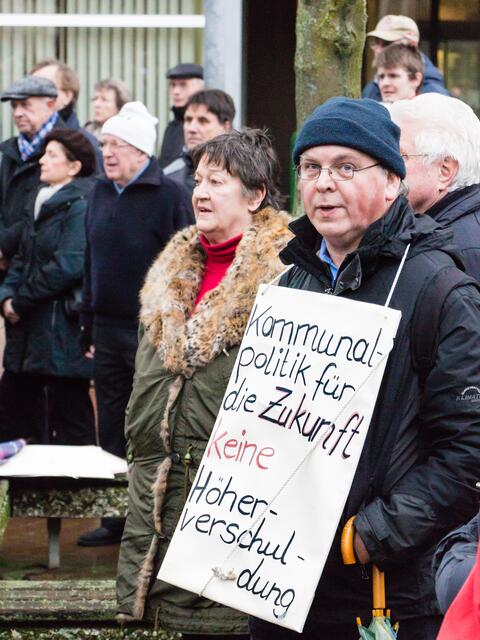 Kommunal-
politik für
die Zukunft
Keine
Höher-
verschul-
dung